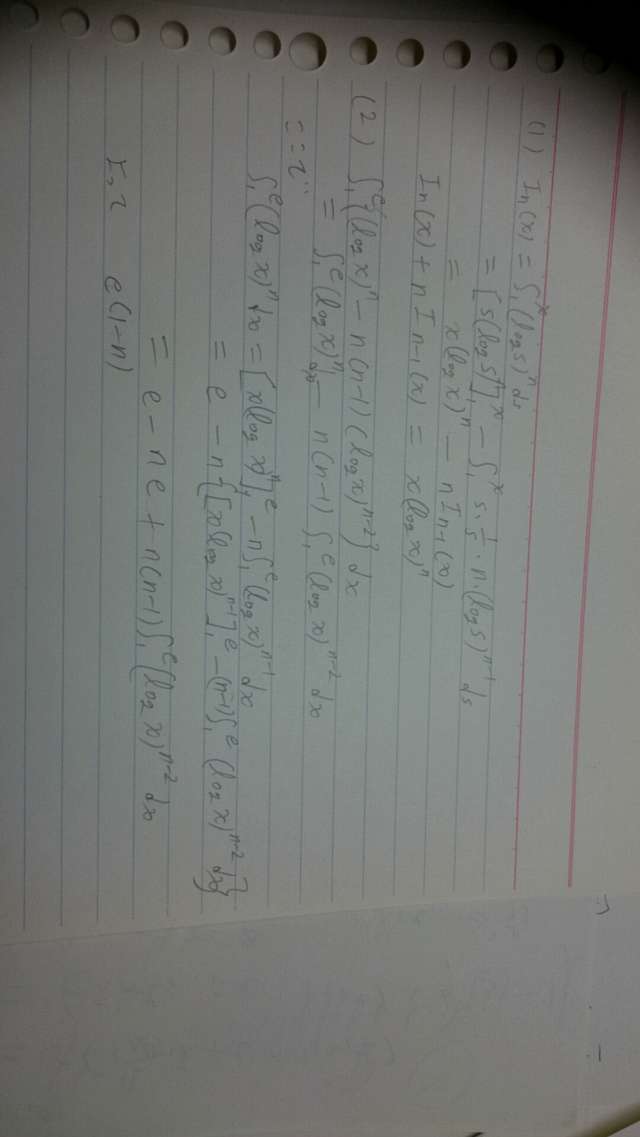 (1) In(x) = ∫₁ˣ(log s)ⁿ ds
= [s(log s)ⁿ]₁ˣ − ∫₁ˣ s・1/s・n・(log s)ⁿ⁻¹ ds
= x(log x)ⁿ − n In-1(x)
In(x) + n In-1(x) = x(log x)ⁿ
(2) ∫₁ᵉ{(log x)ⁿ − n(n−1)(log x)ⁿ⁻²} dx
= ∫₁ᵉ(log x)ⁿ dx − n(n−1)∫₁ᵉ(log x)ⁿ⁻² dx
ここで
∫₁ᵉ(log x)ⁿ dx = [x(log x)ⁿ]₁ᵉ − n∫₁ᵉ(log x)ⁿ⁻¹ dx
= e − n{[x(log x)ⁿ⁻¹]₁ᵉ − (n−1)∫₁ᵉ(log x)ⁿ⁻² dx}
= e − ne + n(n−1)∫₁ᵉ(log x)ⁿ⁻² dx
よって e(1−n)